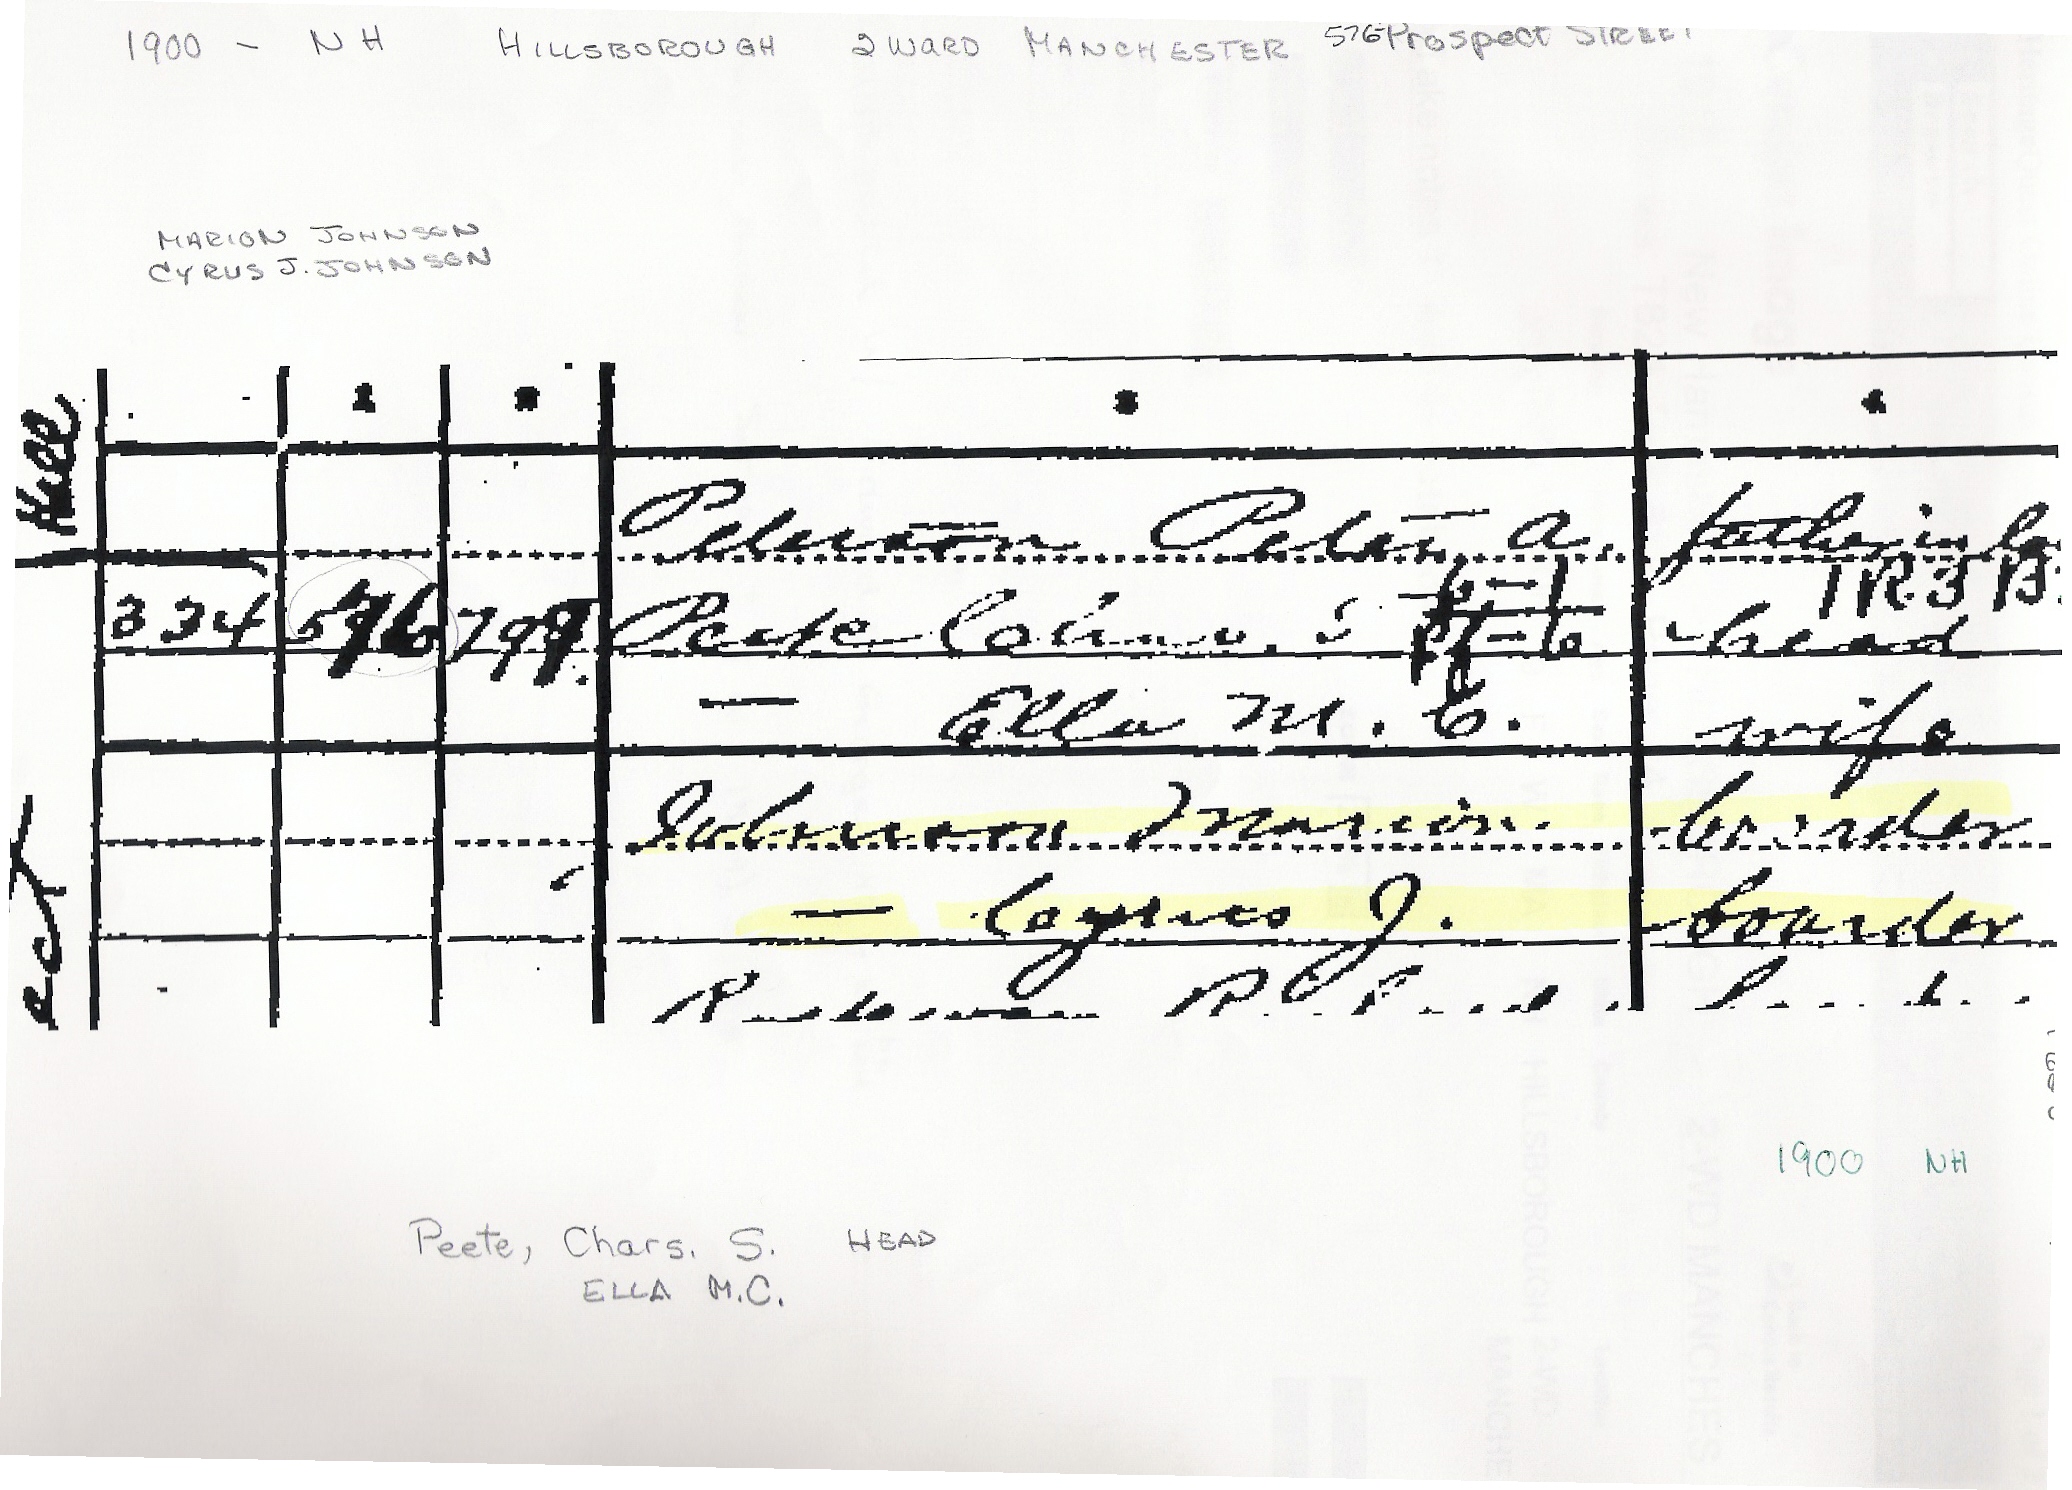 1900 - NH HILLSBOROUGH 2 WARD MANCHESTER 576 Prospect STREET
MARION JOHNSON
CYRUS J. JOHNSON
Hall
Peterson Peter A. father in la
1R3B
334 576 799 Peete head
— Ella M. C. wife
Johnson Marion. boarder
— Cyrus J. boarder
ect
1900 NH
Peete, Chars. S. HEAD
ELLA M.C.